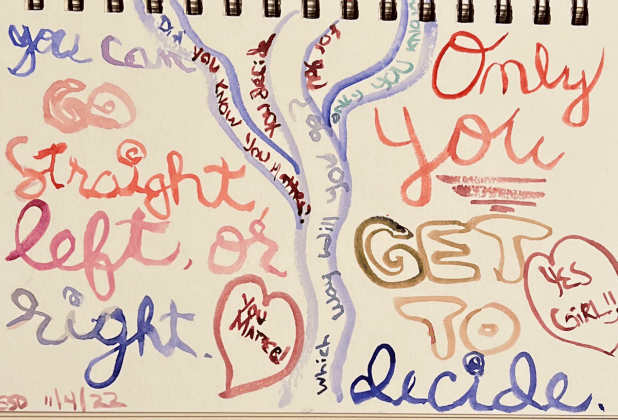 you can
GO
straight,
left, or
right.
Did you know you matter?
Decide
for you
only you know
which way will you go?
YOU
MATTER!
Only
you
GET
TO
decide.
YES
GIRL!!
11/4/22